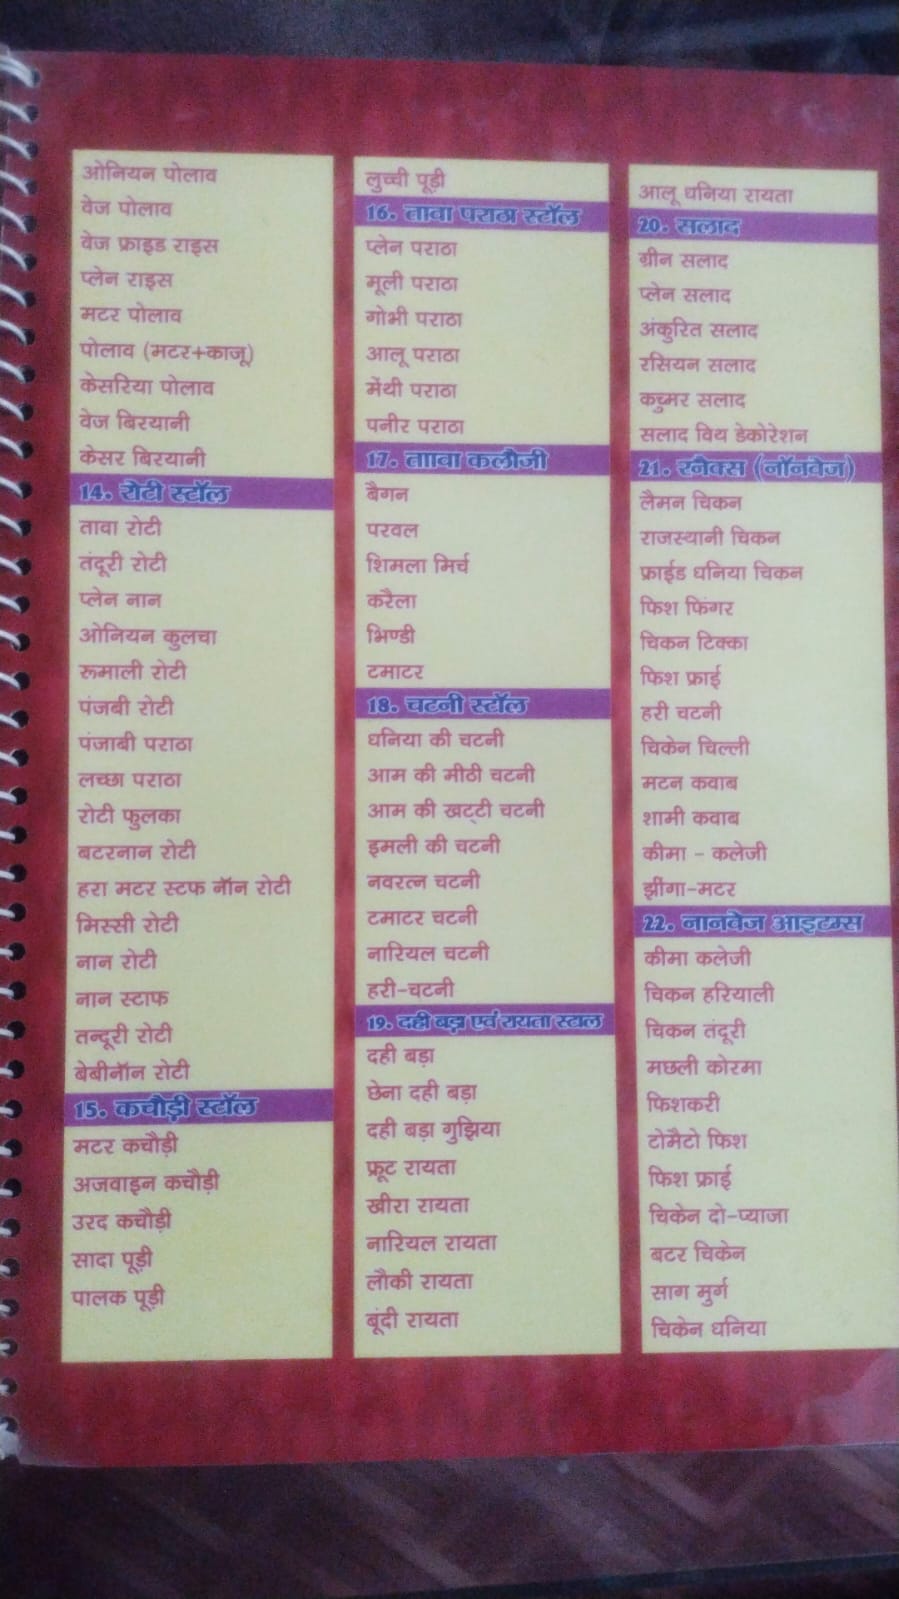 ओनियन पोलाव
वेज पोलाव
वेज फ्राइड राइस
प्लेन राइस
मटर पोलाव
पोलाव (मटर+काजू)
केसरिया पोलाव
वेज बिरयानी
केसर बिरयानी
14. रोटी स्टॉल
तावा रोटी
तंदूरी रोटी
प्लेन नान
ओनियन कुलचा
रूमाली रोटी
पंजबी रोटी
पंजाबी पराठा
लच्छा पराठा
रोटी फुलका
बटरनान रोटी
हरा मटर स्टफ नॉन रोटी
मिस्सी रोटी
नान रोटी
नान स्टाफ
तन्दूरी रोटी
बेबीनॉन रोटी
15. कचौड़ी स्टॉल
मटर कचौड़ी
अजवाइन कचौड़ी
उरद कचौड़ी
सादा पूड़ी
पालक पूड़ी
लुच्ची पूड़ी
16. तावा पराठा स्टॉल
प्लेन पराठा
मूली पराठा
गोभी पराठा
आलू पराठा
मेंथी पराठा
पनीर पराठा
17. ताावा कलौजी
बैगन
परवल
शिमला मिर्च
करैला
भिण्डी
टमाटर
18. चटनी स्टॉल
धनिया की चटनी
आम की मीठी चटनी
आम की खट्टी चटनी
इमली की चटनी
नवरत्न चटनी
टमाटर चटनी
नारियल चटनी
हरी-चटनी
19. दही बड़ा एवं रायता स्टाल
दही बड़ा
छेना दही बड़ा
दही बड़ा गुझिया
फ्रूट रायता
खीरा रायता
नारियल रायता
लौकी रायता
बूंदी रायता
आलू धनिया रायता
20. सलाद
ग्रीन सलाद
प्लेन सलाद
अंकुरित सलाद
रसियन सलाद
कचुमर सलाद
सलाद विथ डेकोरेशन
21. स्नैक्स (नॉनवेज)
लैमन चिकन
राजस्थानी चिकन
फ्राईड धनिया चिकन
फिश फिंगर
चिकन टिक्का
फिश फ्राई
हरी चटनी
चिकेन चिल्ली
मटन कवाब
शामी कवाब
कीमा - कलेजी
झींगा-मटर
22. नानवेज आइटम्स
कीमा कलेजी
चिकन हरियाली
चिकन तंदूरी
मछली कोरमा
फिशकरी
टोमैटो फिश
फिश फ्राई
चिकेन दो-प्याजा
बटर चिकेन
साग मुर्ग
चिकेन धनिया